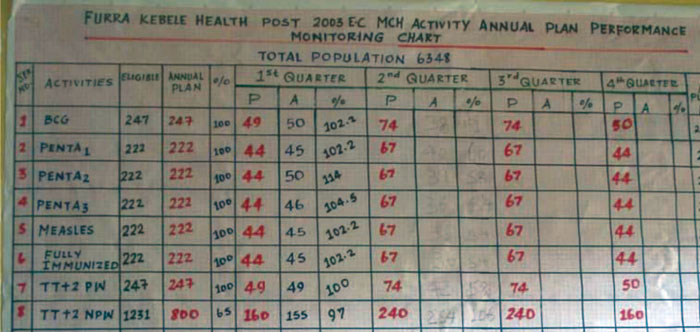 FURRA KEBELE HEALTH POST 2003 E.C MCH ACTIVITY ANNUAL PLAN PERFORMANCE
MONITORING CHART
TOTAL POPULATION 6348
SER. NO. ACTIVITIES ELIGIBLE ANNUAL PLAN % 1st QUARTER 2nd QUARTER 3rd QUARTER 4th QUARTER
P A % P A % P A % P A %
1 BCG 247 247 100 49 50 102.2 74 74 50
2 PENTA1 222 222 100 44 45 102.2 67 67 44
3 PENTA2 222 222 100 44 50 114 67 67 44
4 PENTA3 222 222 100 44 46 104.5 67 67 44
5 MEASLES 222 222 100 44 45 102.2 67 67 44
6 FULLY IMMUNIZED 222 222 100 44 45 102.2 67 67 44
7 TT+2 PW 247 247 100 49 49 100 74 74 50
8 TT+2 NPW 1231 800 65 160 155 97 240 240 160